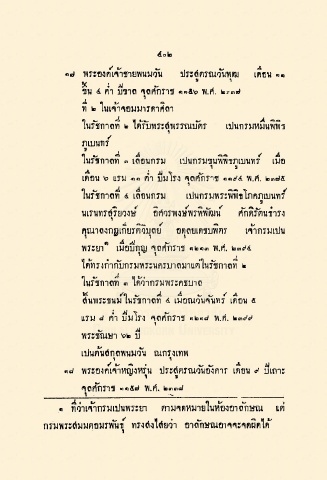 ๕๐๒
๑๗ พระองค์เจ้าชายพนมวัน ประสูตรณวันพุฒ เดือน ๑๑
ขึ้น ๔ ค่ำ ปีขาล จุลศักราช ๑๑๕๖ พ.ศ. ๒๓๓๗
ที่ ๒ ในเจ้าจอมมารดาศิลา
ในรัชกาลที่ ๒ ได้รับพระสุพรรณบัตร เปนกรมหมื่นพิพิธ
ภูเบนทร์
ในรัชกาลที่ ๓ เลื่อนกรม เปนกรมขุนพิพิธภูเบนทร์ เมื่อ
เดือน ๖ แรม ๑๑ ค่ำ ปีมโรง จุลศักราช ๑๑๙๔ พ.ศ. ๒๓๗๕
ในรัชกาลที่ ๔ เลื่อนกรม เปนกรมพระพิพิธโภคภูเบนทร์
นเรนทรสุริยวงษ์ อิศวรพงษ์พรพิพัฒน์ ศักดิรัตนธำรง
คุณาลงกฎเกียรติวิบุลย์ อดุลยเดชบพิตร เจ้ากรมเปน
พระยา๑ เมื่อปีกุญ จุลศักราช ๑๒๑๓ พ.ศ. ๒๓๙๔
ได้ทรงกำกับกรมพระนครบาลมาแต่ในรัชกาลที่ ๒
ในรัชกาลที่ ๓ ได้ว่ากรมพระคชบาล
สิ้นพระชนม์ในรัชกาลที่ ๔ เมื่อณวันจันทร์ เดือน ๕
แรม ๘ ค่ำ ปีมโรง จุลศักราช ๑๒๑๘ พ.ศ. ๒๓๙๙
พระชัณษา ๖๒ ปี
เปนต้นสกุลพนมวัน ณกรุงเทพ
๑๘ พระองค์เจ้าหญิงหรุ่น ประสูตรณวันอังคาร เดือน ๙ ปีเถาะ
จุลศักราช ๑๑๕๗ พ.ศ. ๒๓๓๘
๑ ที่ว่าเจ้ากรมเปนพระยา ตามจดหมายในห้องอาลักษณ แต่
กรมพระสมมตอมรพันธุ์ ทรงสงไสยว่า อาลักษณอาจจะจดผิดได้